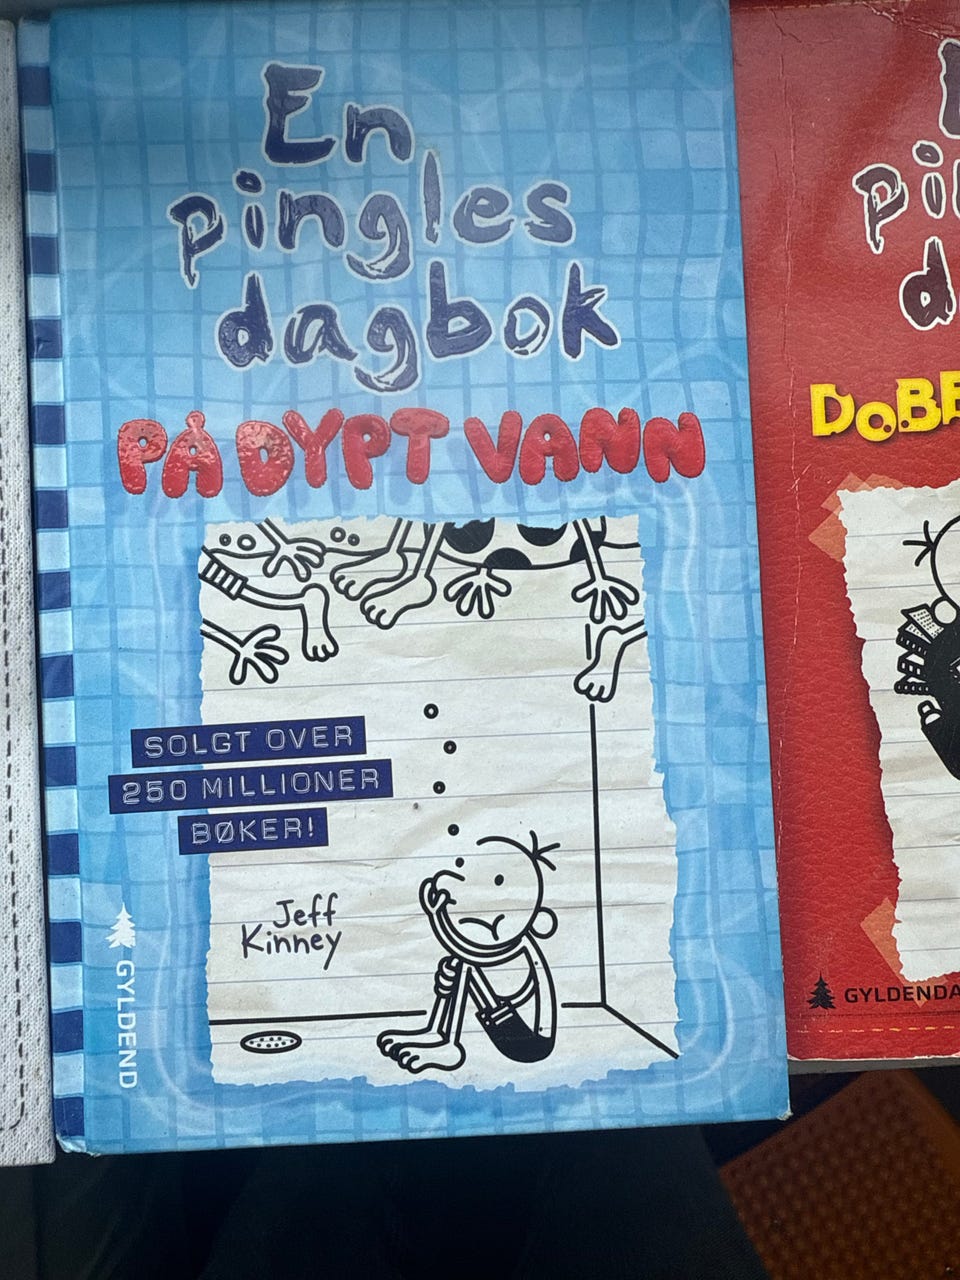 En
pingles
dagbok
PÅ DYPT VANN
SOLGT OVER
250 MILLIONER
BØKER!
Jeff
Kinney
GYLDEND
pi
d
DOBB
GYLDENDA